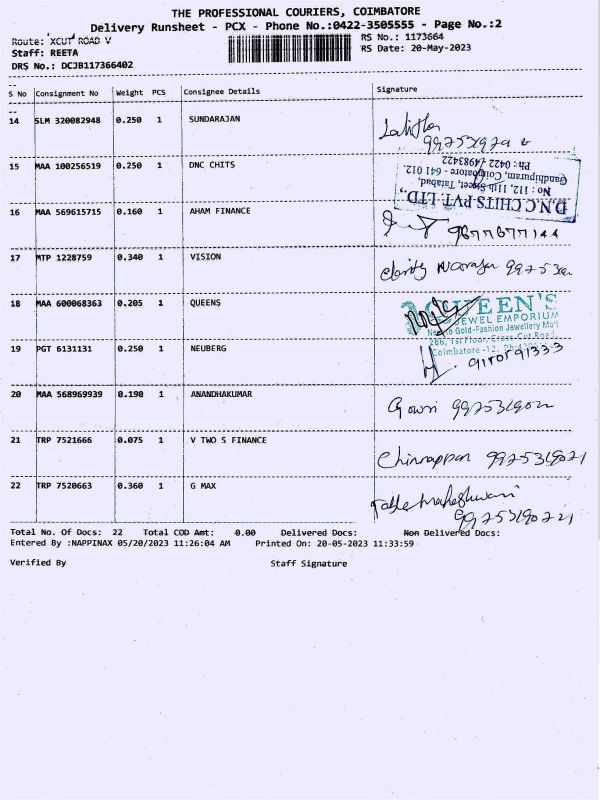 THE PROFESSIONAL COURIERS, COIMBATORE
Delivery Runsheet - PCX - Phone No.:0422-3505555 - Page No.:2
Route: XCUT ROAD V
RS No.: 1173664
Staff: REETA
RS Date: 20-May-2023
DRS No.: DCJB117366402
S No Consignment No Weight PCS Consignee Details Signature
14 SLM 320082948 0.250 1 SUNDARAJAN
15 MAA 100256519 0.250 1 DNC CHITS
D.N.C.CHITS PVT. LTD.,
No : 112, 11th Street, Tatabad,
Gandhipuram, Coimbatore - 641 012.
Ph : 0422 4983422
16 MAA 569615715 0.160 1 AHAM FINANCE 9677677144
17 MTP 1228759 0.340 1 VISION
18 MAA 600068363 0.205 1 QUEENS
QUEEN'S
JEWEL EMPORIUM
Gold-Fashion Jewellery Mall
286, 1st Floor, Cross Cut Road,
Coimbatore -12.
19 PGT 6131131 0.250 1 NEUBERG
20 MAA 568969939 0.190 1 ANANDHAKUMAR Gowri
21 TRP 7521666 0.075 1 V TWO S FINANCE Chinnappan 9975319021
22 TRP 7520663 0.360 1 G MAX
Total No. Of Docs: 22 Total COD Amt: 0.00 Delivered Docs: Non Delivered Docs:
Entered By :NAPPINAX 05/20/2023 11:26:04 AM Printed On: 20-05-2023 11:33:59
Verified By Staff Signature